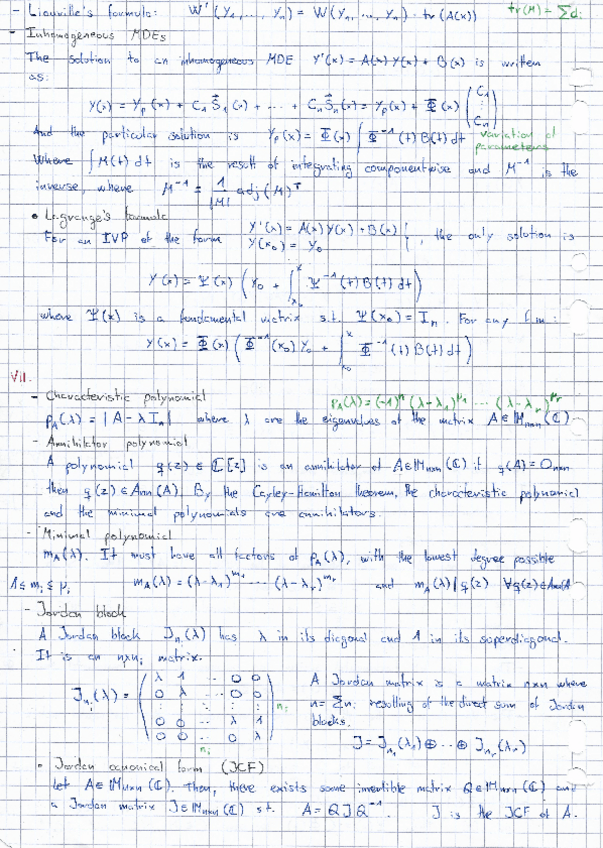 - Liouville's formula: W'(Y₁, ..., Yₙ) = W(Y₁, ..., Yₙ) · tr(A(x)) tr(M) = Σdᵢ
- Inhomogeneous MDEs
The solution to an inhomogeneous MDE Y'(x) = A(x)Y(x) + B(x) is written
as:
Y(x) = Yₚ(x) + C₁S⃗₁(x) + ... + CₙS⃗ₙ(x) = Yₚ(x) + Φ(x) (C₁ ⋮ Cₙ)
And the particular solution is Yₚ(x) = Φ(x) ∫ Φ⁻¹(t) B(t) dt variation of parameters
Where ∫ M(t) dt is the result of integrating componentwise and M⁻¹ is the
inverse, where M⁻¹ = 1/|M| adj(M)ᵀ
• Lagrange's formula
For an IVP of the form Y'(x) = A(x)Y(x) + B(x) Y(x₀) = Y₀ }, the only solution is
Y(x) = Ψ(x) (Y₀ + ∫ₓ₀ˣ Ψ⁻¹(t) B(t) dt)
where Ψ(x) is a fundamental matrix s.t. Ψ(x₀) = Iₙ. For any f.m:
Y(x) = Φ(x) (Φ⁻¹(x₀) Y₀ + ∫ₓ₀ˣ Φ⁻¹(t) B(t) dt)
VII.
- Characteristic polynomial p_A(λ) = (-1)ⁿ (λ-λ₁)^μ₁ ... (λ-λᵣ)^μᵣ
p_A(λ) = |A - λIₙ| where λ are the eigenvalues of the matrix A∈Mₙₓₙ(ℂ)
- Annihilator polynomial
A polynomial q(z) ∈ ℂ[z] is an annihilator of A∈Mₙₓₙ(ℂ) if q(A) = Oₙₓₙ
then q(z)∈Ann(A). By the Cayley-Hamilton theorem, the characteristic polynomial
and the minimal polynomials are annihilators.
- Minimal polynomial
m_A(λ). It must have all factors of p_A(λ), with the lowest degree possible
1 ≤ mᵢ ≤ μᵢ m_A(λ) = (λ-λ₁)^m₁ ... (λ-λᵣ)^mᵣ and m_A(λ) | q(z) ∀q(z)∈Ann(A)
- Jordan block
A Jordan block Jₙᵢ(λ) has λ in its diagonal and 1 in its superdiagonal.
It is an nᵢxnᵢ matrix.
Jₙᵢ(λ) = (λ 1 ... 0 0
0 λ ... 0 0
: : ... : :
0 0 ... λ 1
0 0 ... 0 λ) nᵢ
nᵢ
A Jordan matrix is a matrix nxn where
n = Σnᵢ resulting of the direct sum of Jordan
blocks.
J = Jₙ₁(λ₁) ⊕ ... ⊕ Jₙᵣ(λᵣ)
• Jordan canonical form (JCF)
Let A∈Mₙₓₙ(ℂ). Then, there exists some invertible matrix Q∈Mₙₓₙ(ℂ) and
a Jordan matrix J∈Mₙₓₙ(ℂ) s.t. A = QJQ⁻¹. J is the JCF of A.